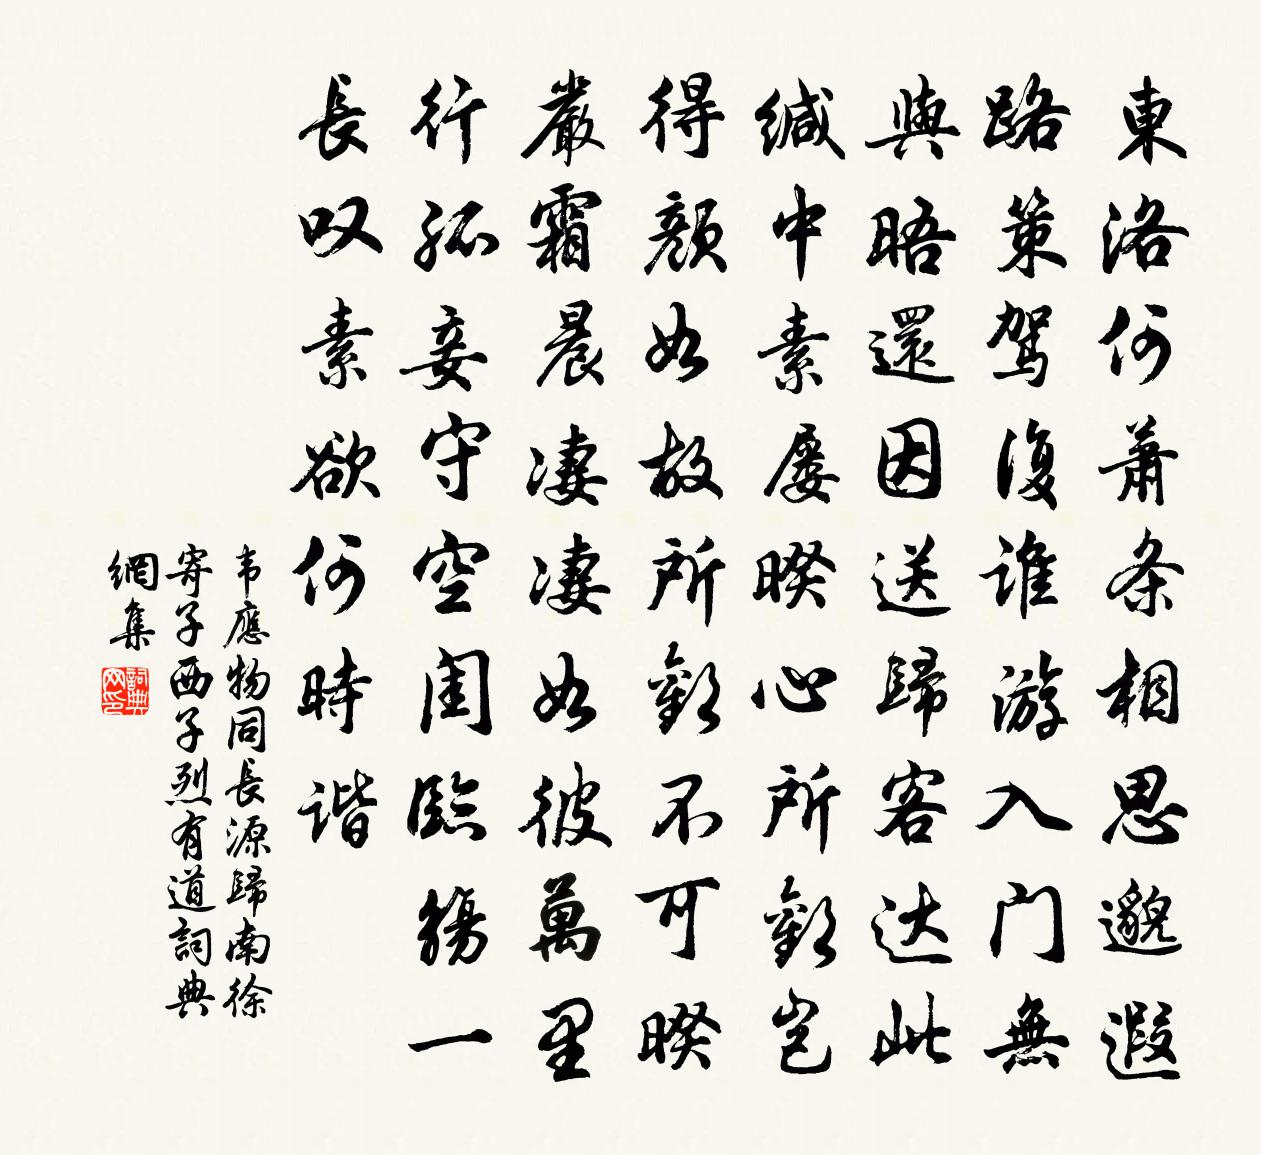 東洛何蕭条相思邈遐
路策駕復誰游入门無
與晤還因送歸客达此
緘中素屡暌心所歡岂
得顔如故所歡不可暌
嚴霜晨凄凄如彼萬里
行孤妾守空閨臨觴一
長叹素欲何時谐
韦應物同長源歸南徐
寄子西子烈有道詞典
網集
詞典
网印